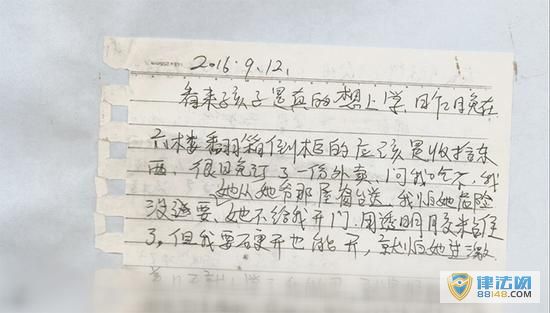 2016.9.12.
看来孩子是真的想上学,昨晚在
六楼翻箱倒柜的应该是收拾东
西,很晚订了一份外卖,问我吃不,我
她从她爷那屋窗台送,我怕她危险
没送要,她不给我开门,用透明胶粘住
了,但我要硬开也能开,就怕她过激
律法网
88148.com